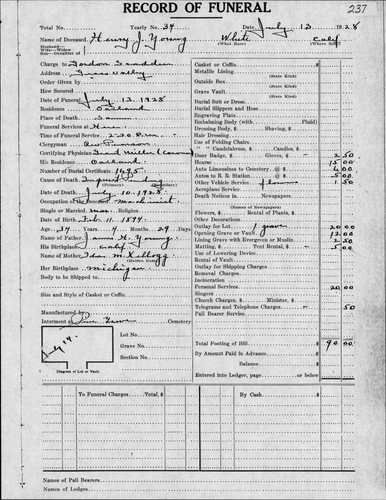 RECORD OF FUNERAL 237
Total No. Yearly No. 34 Date July 13 1928
Name of Deceased Henry J. Young White Calif
(What Race) (Where Born)
Charge to Gordon
Address Grass Valley
Order Given by
How Secured
Date of Funeral July 13, 1928
Residence Oakland
Place of Death Same
Funeral Services at Here
Time of Funeral Service 2:30 P.m.
Clergyman Rev
Certifying Physician Fred Miller (Coroner)
His Residence Oakland
Number of Burial Certificate 1695
Cause of Death
(Primary) (Secondary)
Date of Death July 10, 1928
Occupation of the Deceased machinist
Single or Married mar. Religion
Date of Birth Feb. 11, 1894
Age 34 Years 4 Months 29 Days
Name of Father James H. Young
His Birthplace Calif
Name of Mother Idae M. Kellogg
(Maiden Name)
Her Birthplace Michigan
Body to be Shipped to
Size and Style of Casket or Coffin
Manufactured by
Interment at Pine Grove Cemetery
Lot No.
Grave No.
Section No.
July 14.
Diagram of Lot or Vault
Casket or Coffin
Metallic Lining
(State Kind)
Outside Box
(State Kind)
Grave Vault
(State Kind)
Burial Suit or Dress
Burial Slippers and Hose
Engraving Plate
Embalming Body (with Fluid)
Dressing Body, $ Shaving, $
Hair Dressing
Use of Folding Chairs
" " Candelabrum, $ Candles, $
Door Badge, $ Gloves, $ 2 50
Hearse 15 00
Auto Limousines to Cemetery @$ 6 00
Autos to R. R. Station @$ 5 00
Other Vehicle Service flowers 5 00
Aeroplane Service
Death Notices in Newspapers
(Names of Newspapers)
Flowers, $ Rental of Plants, $
Other Decorations
Outlay for Lot 1 grave 20 00
Opening Grave or Vault 12 00
Lining Grave with Evergreen or Muslin 2 50
Matting, $ Tent Rental, $ 5 00
Use of Lowering Device
Rental of Vault
Outlay for Shipping Charges
Removal Charges
Incineration
Personal Services 20 00
Singers
Church Charges, $ Minister, $
Telegrams and Telephone Charges 50
Pall Bearer Service
Total Footing of Bill $ 90 00
By Amount Paid in Advance
Balance
Entered into Ledger, page or below
To Funeral Charges Total, $ By Cash $
Names of Pall Bearers
Names of Lodges